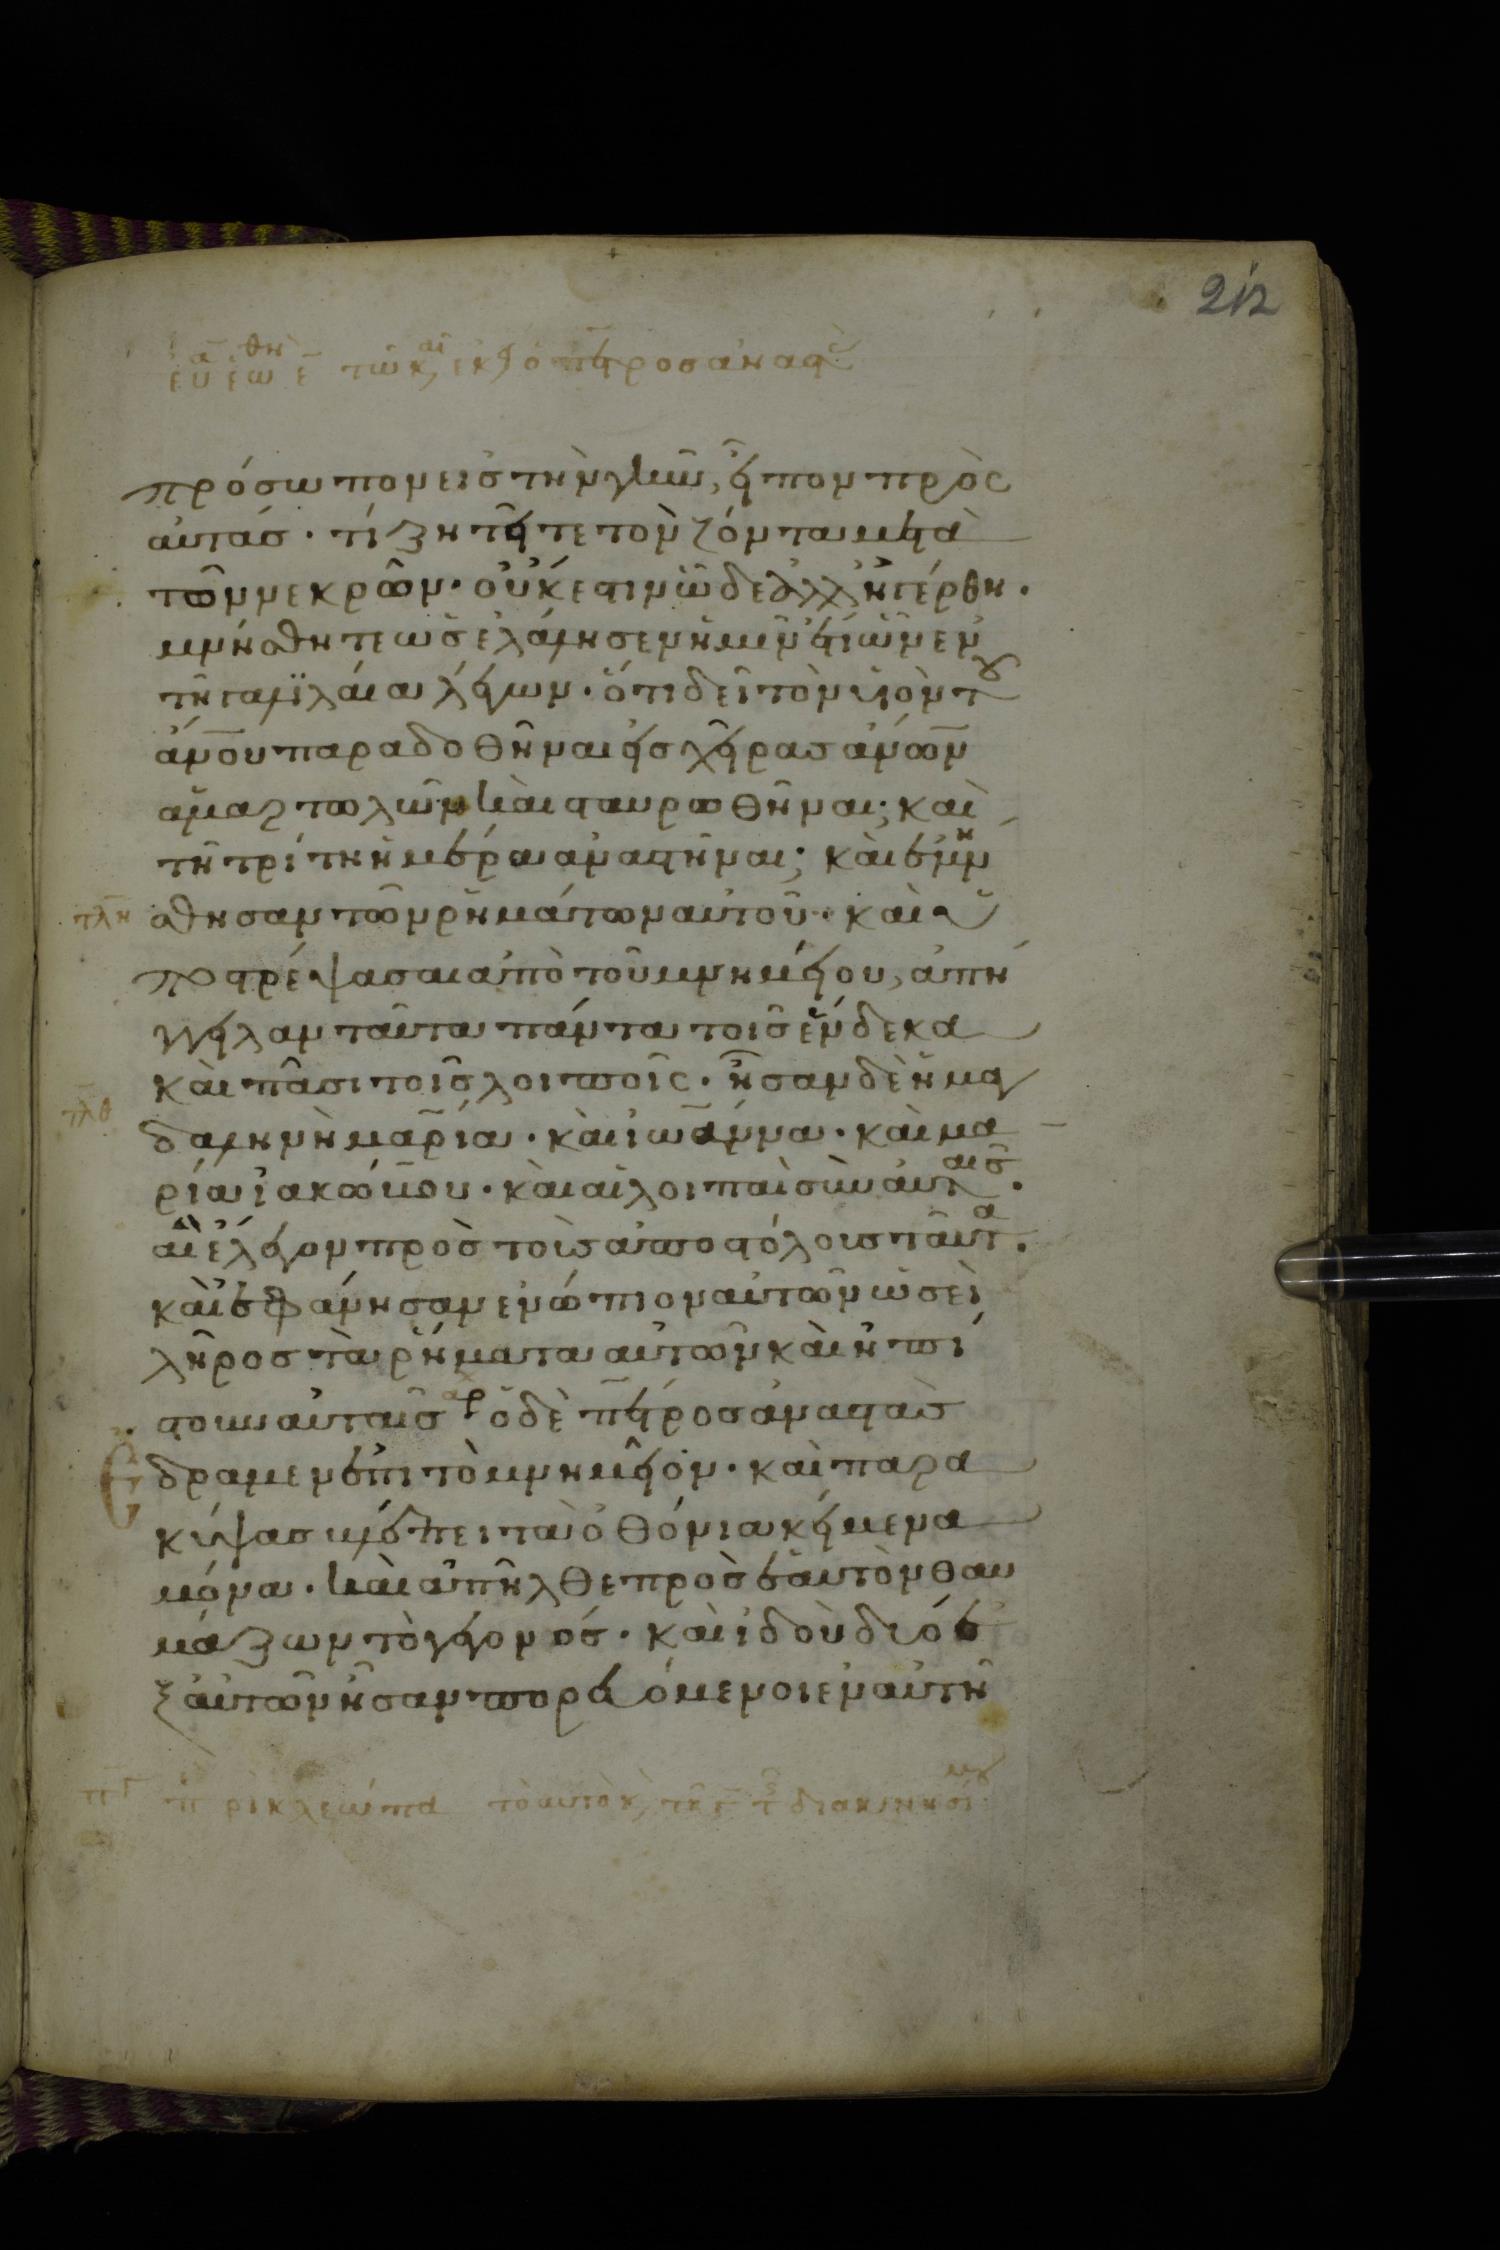 212
πρόσωπον εἰς τὴν γῆν, εἶπον πρὸς
αὐτάς· τί ζητεῖτε τὸν ζόντα μετὰ
τῶν νεκρῶν· οὐκ ἔστιν ὧδε ἀλλ ἠγέρθη·
μνήσθητε ὡς ἐλάλησεν ἡμῖν ἔτι ὢν ἐν
τῆ γαλϊλαία λέγων· ὅτι δεῖ τὸν υἱὸν του
ἀν̅ο̅υ̅ παραδοθῆναι εἰς χεῖρας ἀν̅ω̅ν̅
ἁμαρτωλῶν καὶ σταυρωθῆναι· καὶ
τῆ τρίτη ἡμέρα ἀναστῆναι· καὶ ἐμνή
σθησαν τῶν ῥημάτων αὐτοῦ· καὶ ὑ
τλη
ποστρέψασαι ἀπὸ τοῦ μνημείου, ἀπή
γγειλαν ταῦτα πάντα τοῖς ἕνδεκα
καὶ πᾶσι τοῖς λοιποῖς· ἦσαν δὲ ἡ μαγ
τλθ
δαληνὴ μαρία· καὶ ἰωάννα· καὶ μα
ρία ἰακώβου· καὶ αἱ λοιπαὶ σὺν αὐταῖς·
αἳ ἔλεγον πρὸς τοὺς ἀποστόλους ταῦτα·
καὶ ἐφάνησαν ἐνώπιον αὐτῶν ὡσεὶ
λῆρος τὰ ῥήματα αὐτῶν καὶ ἠπί
στουν αὐταῖς ὁ δὲ πέτρος ἀναστὰς
ἔδραμεν ἐπὶ τὸ μνημεῖον· καὶ παρα
κύψας βλέπει τὰ ὀθόνια κείμενα
μόνα· καὶ ἀπῆλθε πρὸς ἑαυτὸν θαυ
μάζων τὸ γεγονός· καὶ ἰδοὺ δύο ἐ
ξ αὐτῶν ἦσαν πορευόμενοι ἐν αὐτῆ
πγ π ρὶ κλεώπα